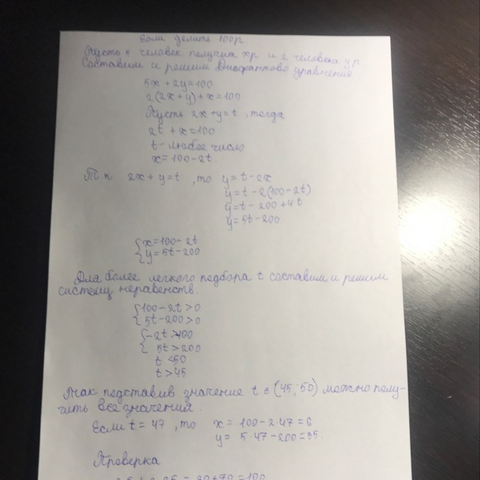 Если делить 100р.
Пусть 5 человек получил хр. и 2 человека ур
Составим и решим Диофантово уравнение
5x + 2y = 100
2(2x+y)+x=100
Пусть 2x+y=t, тогда
2t + x = 100
t - любое число
x = 100 - 2t
Т.к 2x + y = t, то y = t - 2x
y = t - 2(100 - 2t)
y = t - 200 + 4t
y = 5t - 200
{x = 100 - 2t
{y = 5t - 200
Для более легкого подбора t составим и решим
систему неравенств
{100 - 2t > 0
{5t - 200 > 0
5t > 200
t < 50
t > 45
Так подставив значение t ∈ (45; 50) можно полу-
чить все значения
Если t = 47, то x = 100 - 2·47 = 6
y = 5·47 - 200 = 35
Проверка